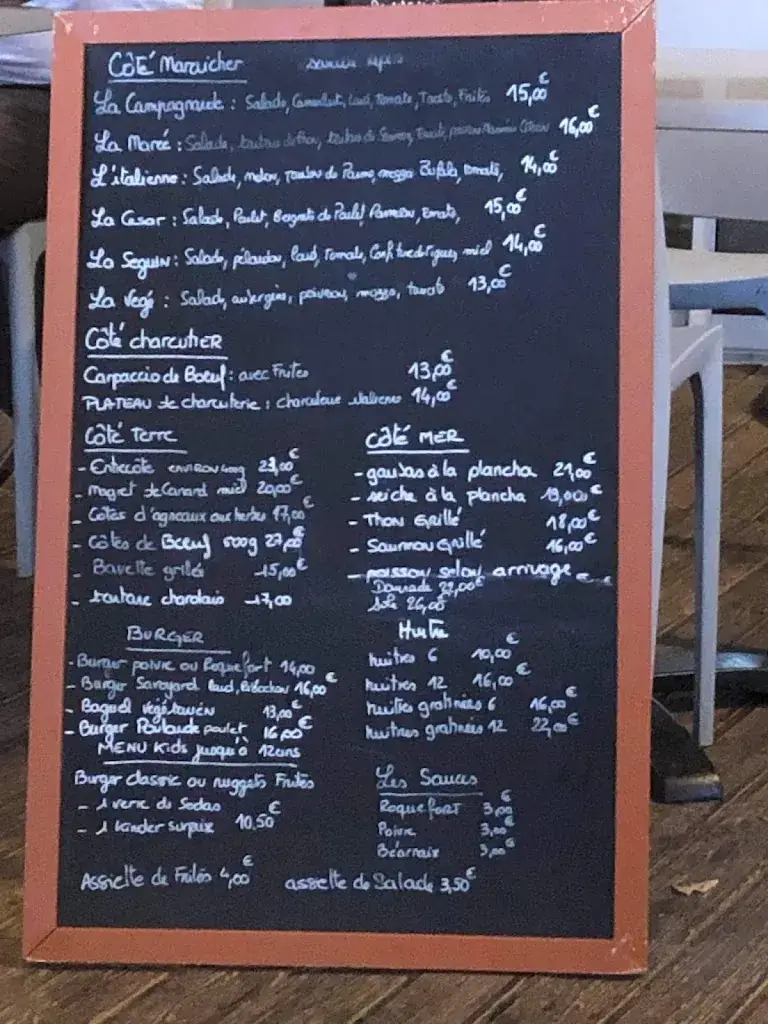 Côté Maraicher
La Campagnarde : Salade, Camembert, Lard, Tomate, Toasts, Frites 15,00€
La Marée : Salade, 16,00€
L'italienne : Salade, melon, de Parme, mozza Bufala, tomate, 14,00€
La Cesar : Salade, Poulet, Beignets de Poulet Parmesan, tomate, 15,00€
La Seguin : Salade, pélardon, Lard, Tomate, Confiture de figues, miel 14,00€
La Vegé : Salade, aubergines, poivrons, mozza, tomate 13,00€
Côté charcutier
Carpaccio de Boeuf : avec Frites 13,00€
PLATEAU de charcuterie : charcuterie italienne 14,00€
Côté Terre
- Entrecôte ENVIRON 400g €
- Magret de Canard miel 20,00€
- Côtes d'agneaux aux herbes 17,00€
- Côtes de Boeuf 500g 27,00€
- Bavette grillée 15,00€
- tartare charolais 17,00
côté MER
- gambas à la plancha 21,00€
- seiche à la plancha 19,00€
- Thon Grillé 18,00€
- Saumon Grillé 16,00€
- poisson selon arrivage
Daurade 22,00€
Sole 26,00€
BURGER
- Burger poivre ou Roquefort 14,00
- Burger Savoyard Lard, Reblochon 16,00€
- Baguel végétarien 13,00€
- Burger Poularde poulet 16,00€
Huitre
huitres 6 10,00€
huitres 12 16,00€
huitres gratinées 6 16,00€
huitres gratinées 12 22,00€
MENU Kids jusqu'à 12ans
Burger classic ou nuggets Frites
- 1 verre de Sodas
- 1 kinder surprise 10,50€
Les Sauces
Roquefort 3,00€
Poivre 3,00€
Béarnaise 3,00€
Assiette de Frites 4,00€
assiette de Salade 3,50€